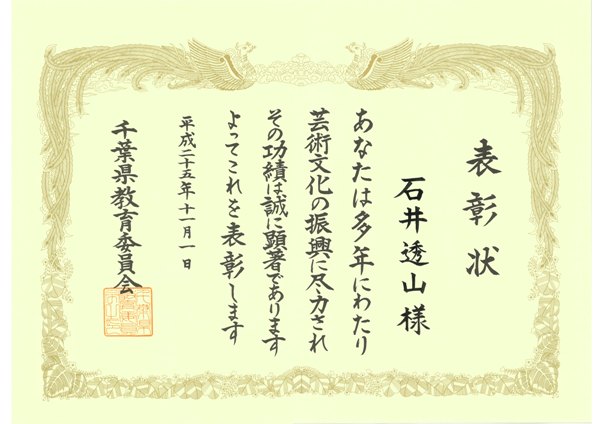 表彰状
石井透山様
あなたは多年にわたり
芸術文化の振興に尽力され
その功績は誠に顕著であります
よってこれを表彰します
平成二十五年十一月一日
千葉県教育委員会